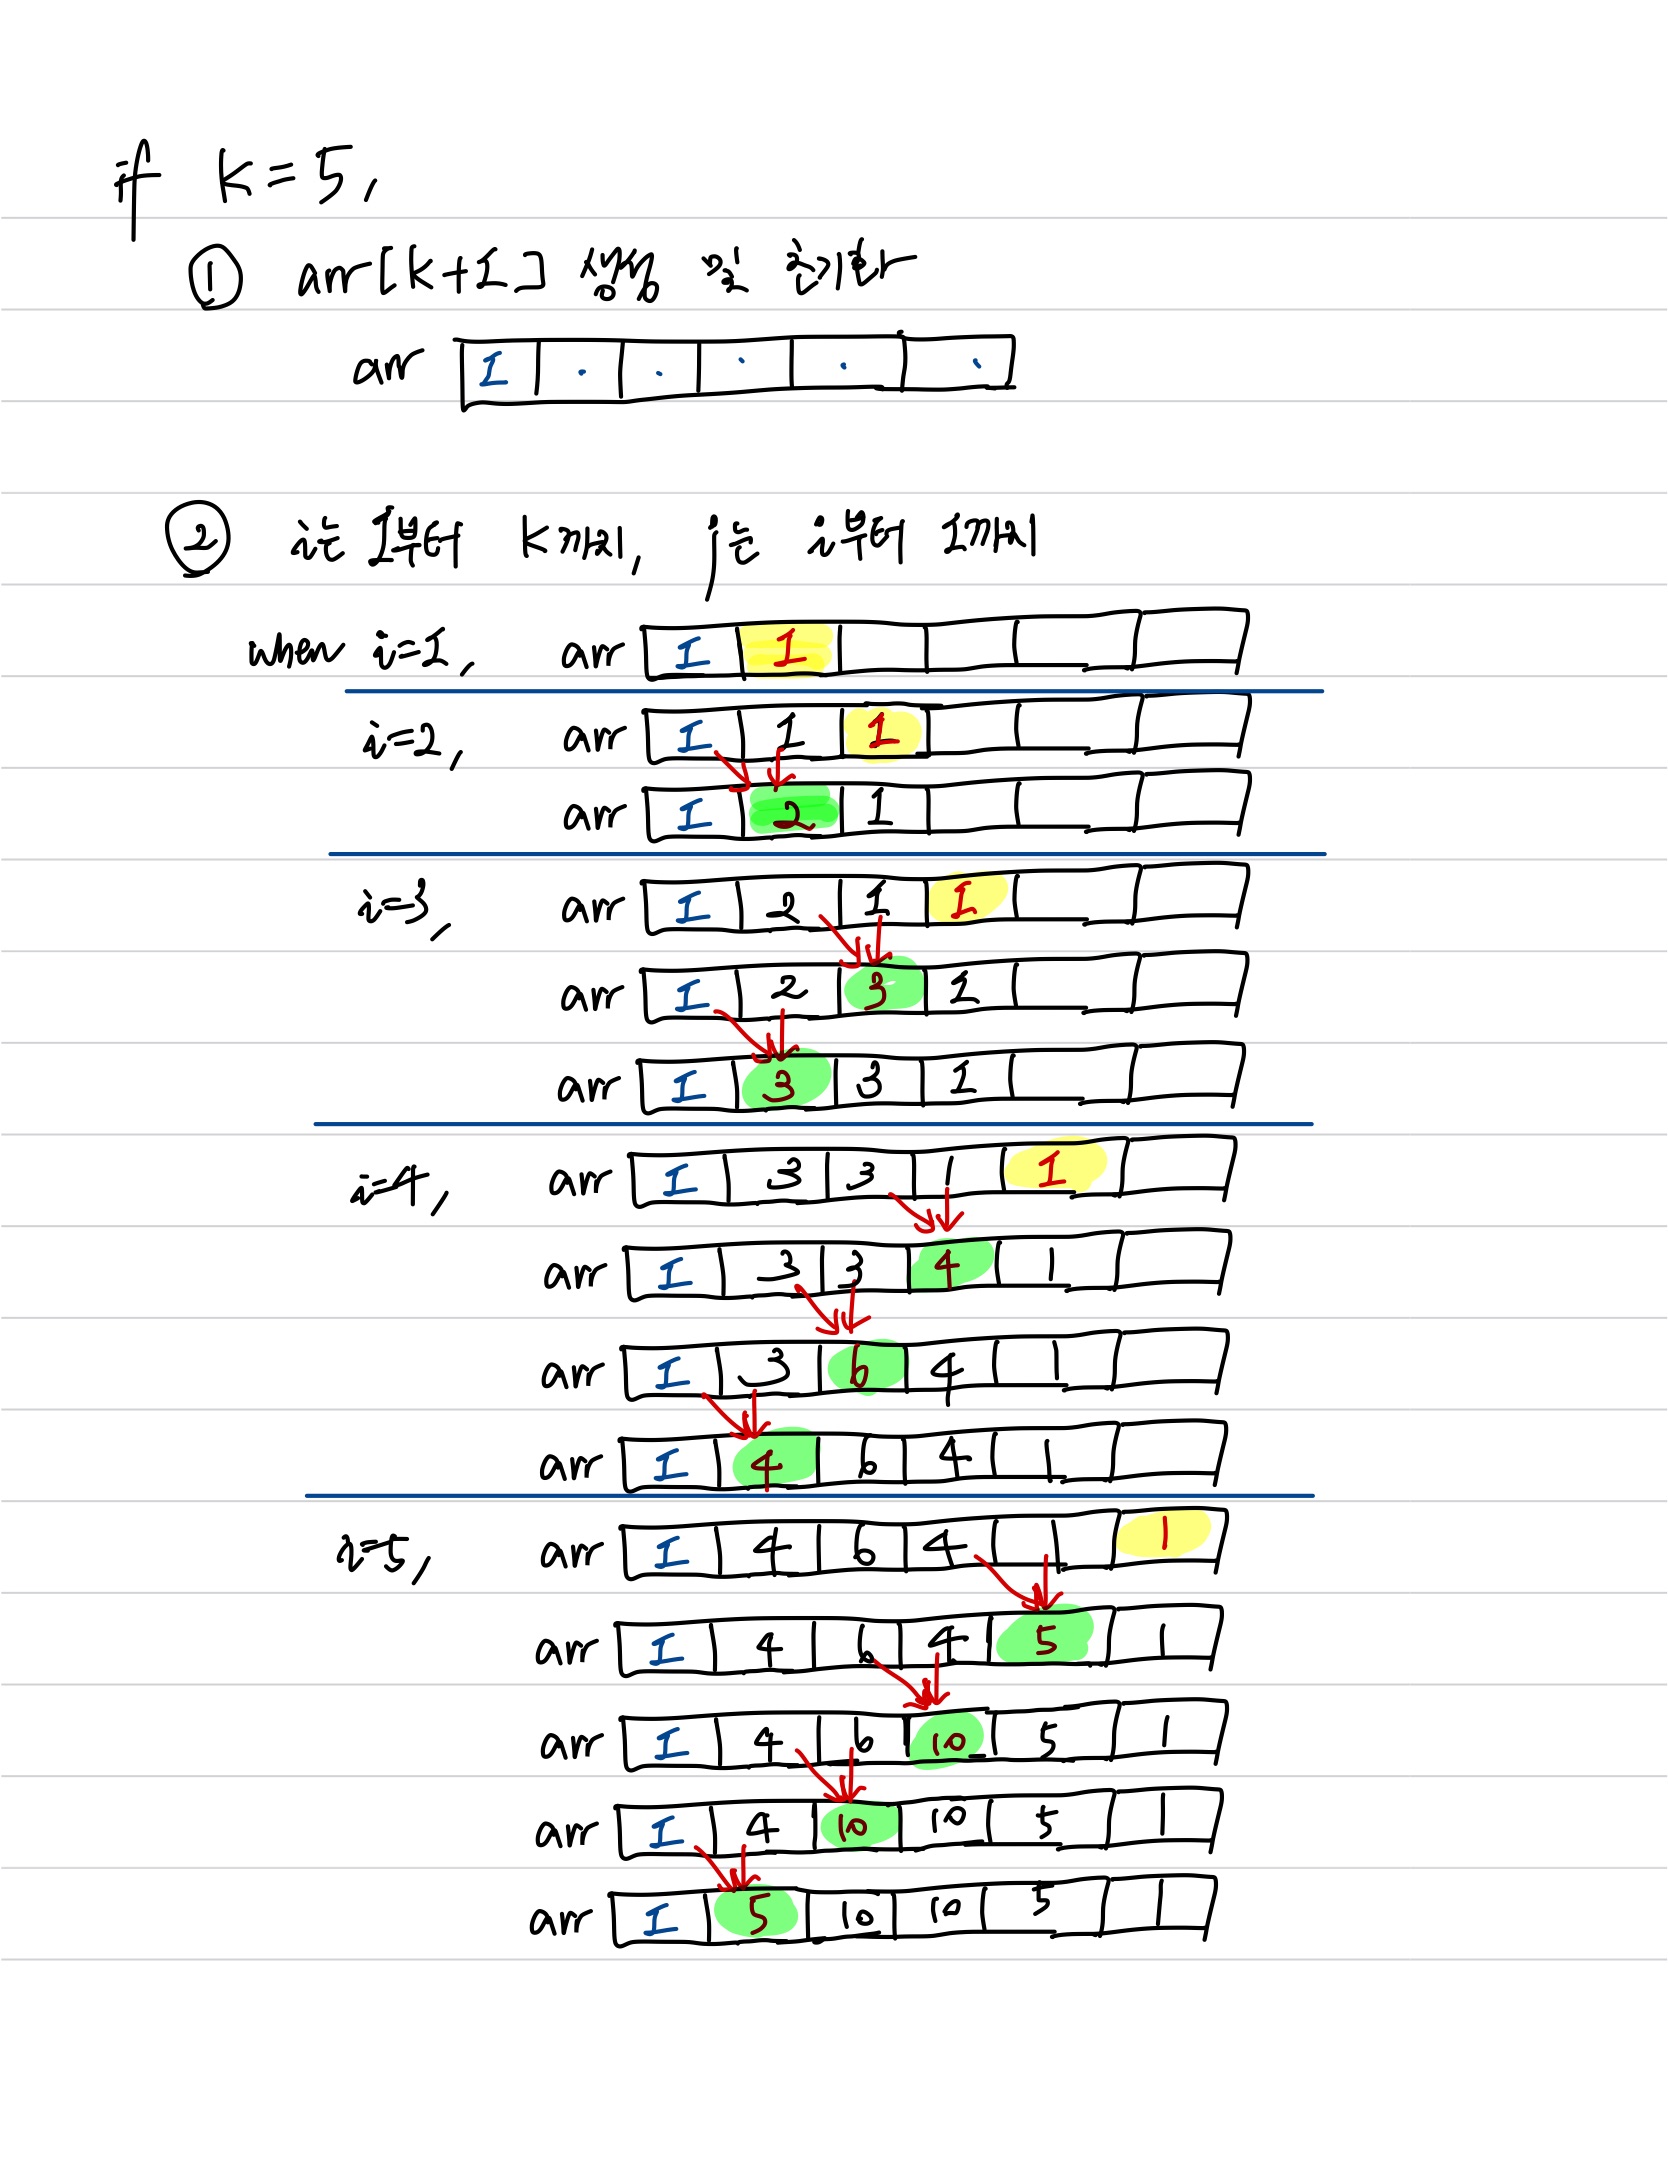 if k=5,
① arr[k+1] 생성 및 초기화
arr 1 · · · · ·
② i는 1부터 k까지, j는 i부터 1까지
when i=1, arr 1 1
i=2, arr 1 1 1
arr 1 2 1
i=3, arr 1 2 1 1
arr 1 2 3 1
arr 1 3 3 1
i=4, arr 1 3 3 1 1
arr 1 3 3 4 1
arr 1 3 6 4 1
arr 1 4 6 4 1
i=5, arr 1 4 6 4 1 1
arr 1 4 6 4 5 1
arr 1 4 6 10 5 1
arr 1 4 10 10 5 1
arr 1 5 10 10 5 1